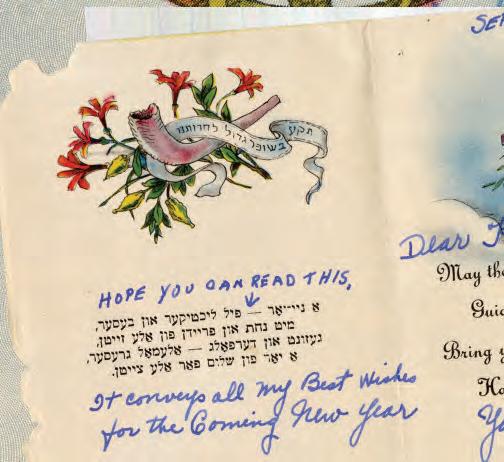 SE
תקע
בשופר גדול לחרותנו
HOPE YOU CAN READ THIS,
א ניי־יאר — פיל ליכטיקער און בעסער,
מיט נחת און פריידן פון אלע זייטן,
געזונט און דערפאלג — אלעמאל גרעסער,
א יאר פון שלום פאר אלע צייטן.
It conveys all my Best Wishes
for the Coming New Year
Dear
May the
Guid
Bring y